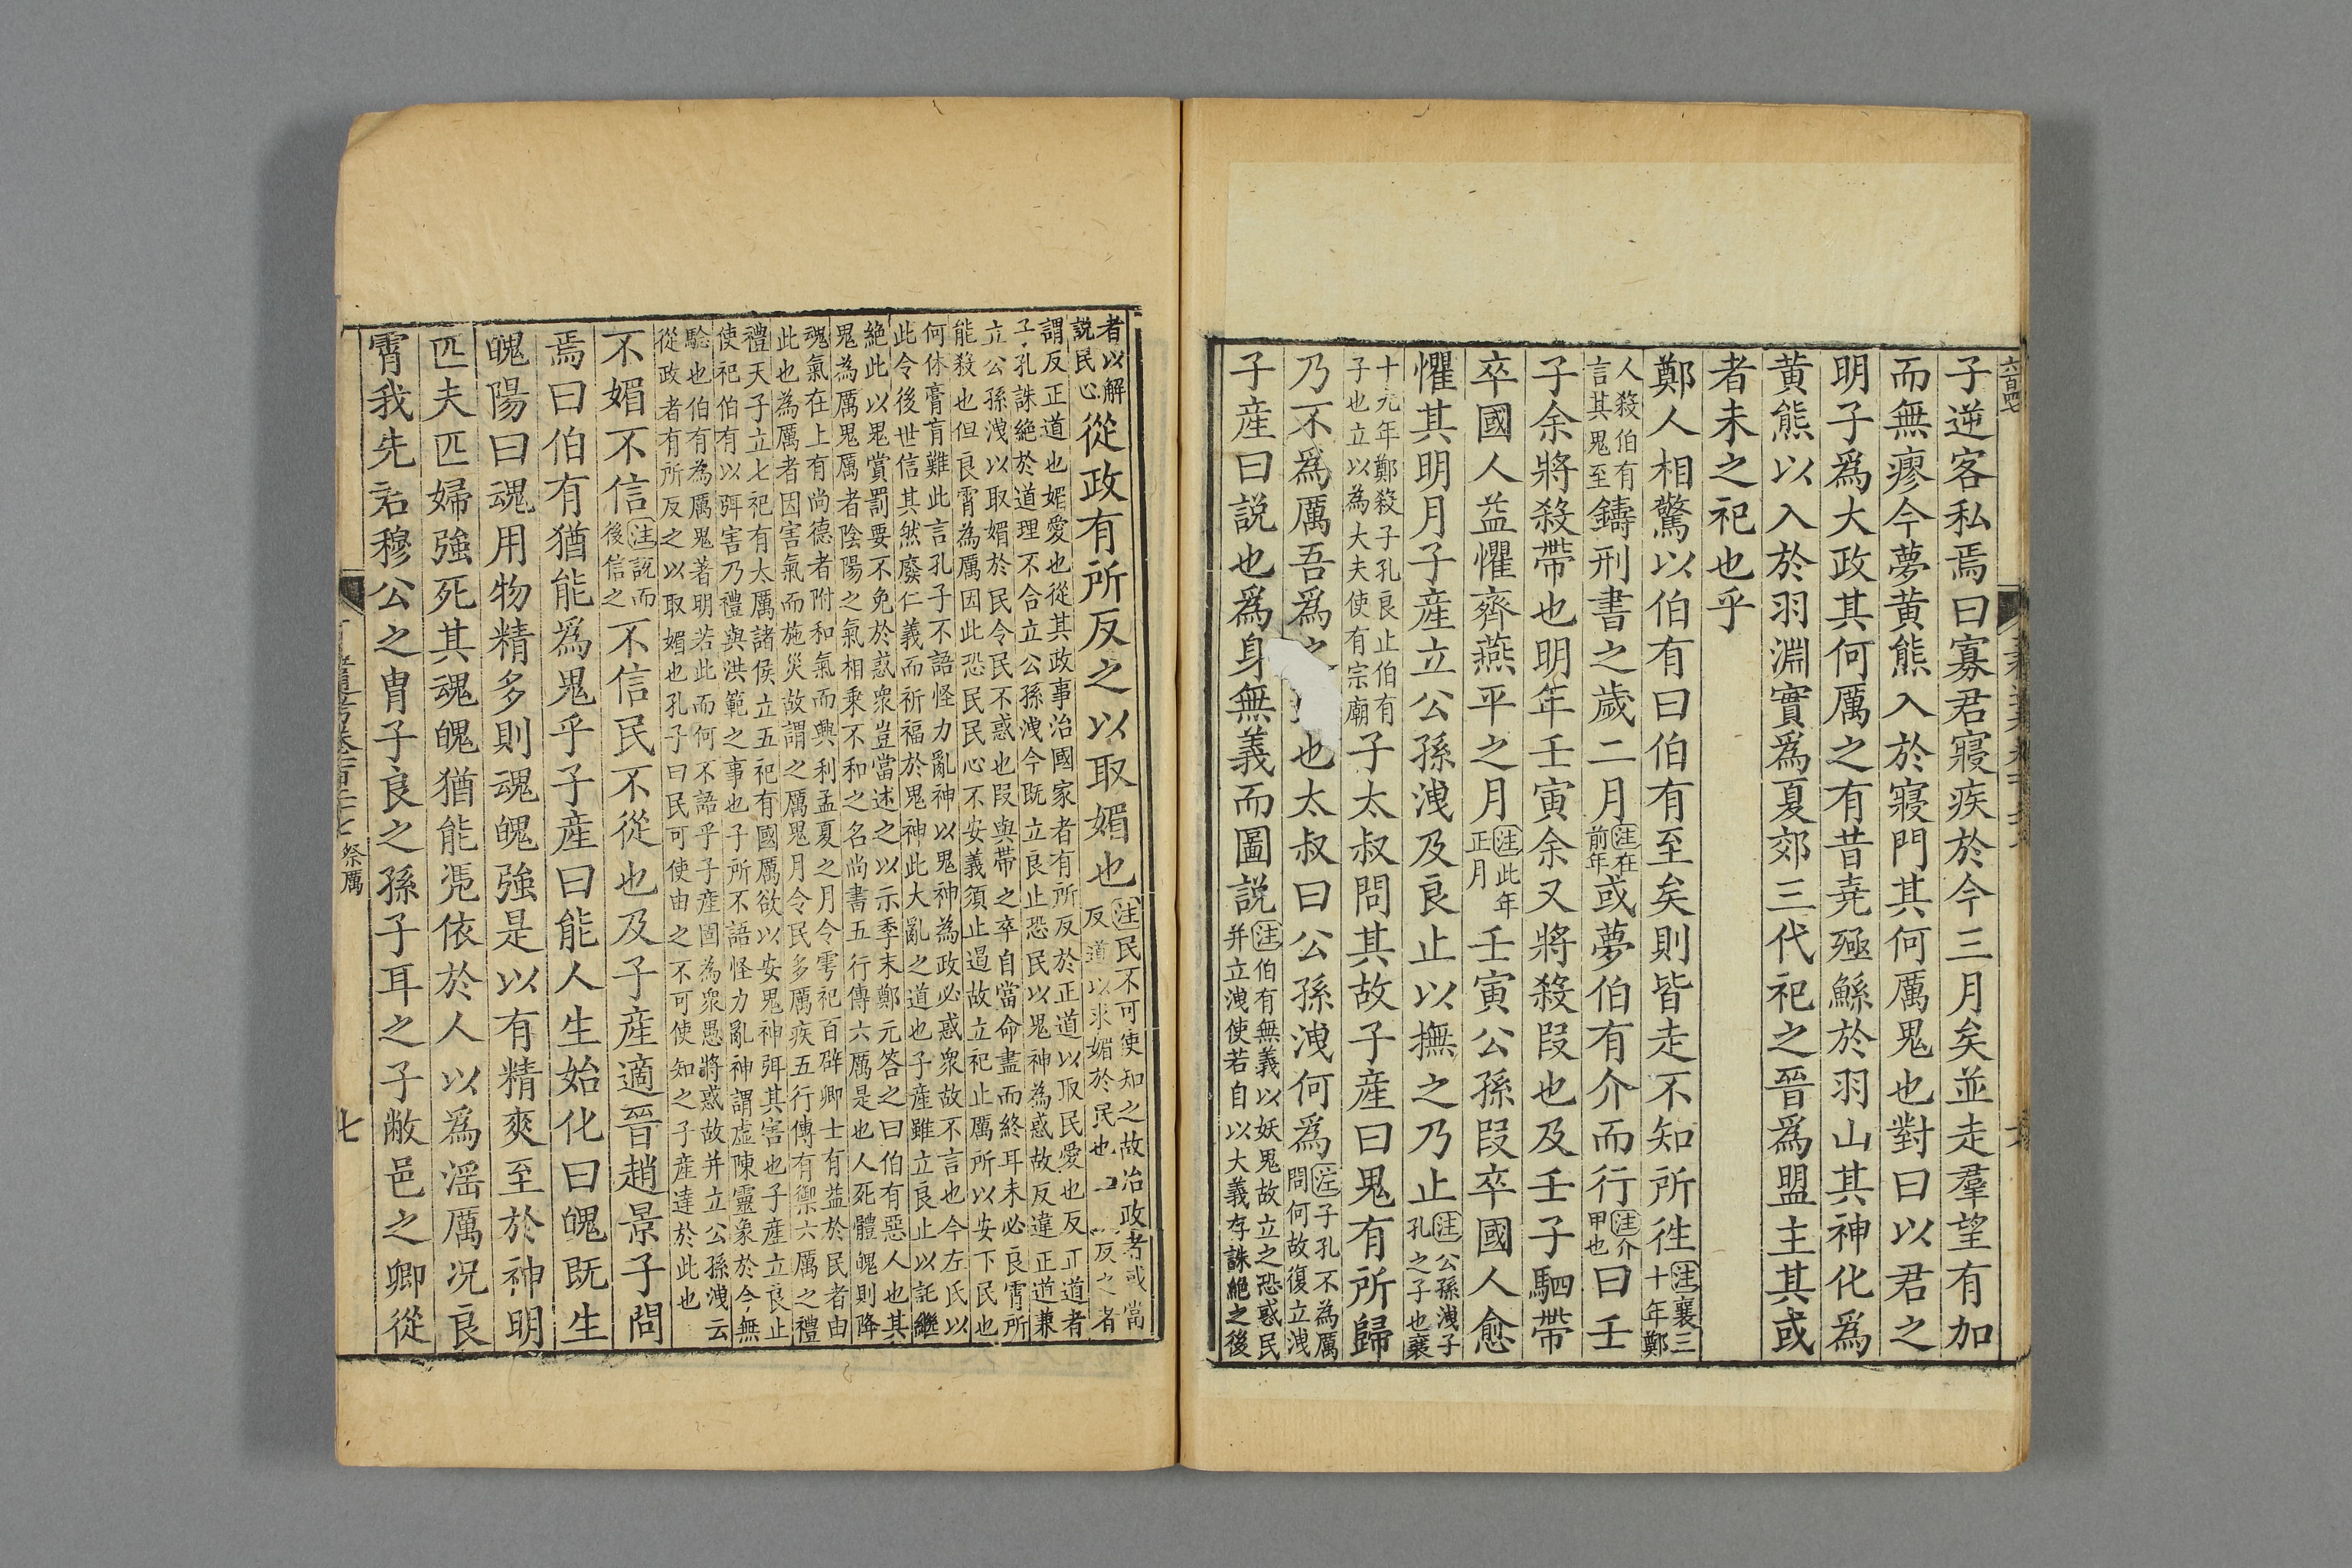 子逆客私焉曰寡君寢疾於今三月矣並走羣望有加
而無瘳今夢黄熊入於寢門其何厲鬼也對曰以君之
明子爲大政其何厲之有昔堯殛鯀於羽山其神化爲
黄熊以入於羽淵實爲夏郊三代祀之晉爲盟主其或
者未之祀也乎
鄭人相驚以伯有曰伯有至矣則皆走不知所徃注襄三十年鄭
人殺伯有言其鬼至鑄刑書之歲二月注在前年或夢伯有介而行注介甲也曰壬
子余將殺帶也明年壬寅余又將殺段也及壬子駟帶
卒國人益懼齊燕平之月注此年正月壬寅公孫段卒國人愈
懼其明月子產立公孫洩及良止以撫之乃止注公孫洩子孔之子也襄
十九年鄭殺子孔良止伯有子也立以為大夫使有宗廟子太叔問其故子產曰鬼有所歸
乃不爲厲吾爲之也太叔曰公孫洩何爲注子孔不為厲問何故復立洩
子產曰說也爲身無義而圖說注伯有無義以妖鬼故立之恐惑民并立洩使若自以大義存誅絕之後
者以解說民心從政有所反之以取媚也注民不可使知之故治政者或當反道以求媚於民也
反之者
謂反正道也媚愛也從其政事治國家者有所反於正道以取民愛也反正道者
子孔誅絕於道理不合立公孫洩今既立良止恐民以鬼神為惑故反違正道兼
立公孫洩以取媚於民令民不惑也段與帶之卒自當命盡而終耳未必良霄所
能殺也但良霄為厲因此恐民民心不安義須止遏故立祀止厲所以安下民也
何休膏肓難此言孔子不語怪力亂神以鬼神為政必惑衆故不言也今左氏以
此令後世信其然廢仁義而祈福於鬼神此大亂之道也子產雖立良止以託繼
絕此以鬼賞罰要不免於惑衆豈當述之以示季末鄭元答之曰伯有惡人也其
鬼為厲鬼厲者陰陽之氣相乘不和之名尚書五行傳六厲是也人死體魄則降
魂氣在上有尚德者附和氣而興利孟夏之月令雩祀百辟卿士有益於民者由
此也為厲者因害氣而施災故謂之厲鬼月令民多厲疾五行傳有禦六厲之禮
禮天子立七祀有太厲諸侯立五祀有國厲欲以安鬼神弭其害也子產立良止
使祀伯有以弭害乃禮與洪範之事也子所不語怪力亂神謂虛陳靈象於今無
驗也伯有為厲鬼著明若此而何不語乎子產固為衆愚將惑故并立公孫洩云
從政者有所反之以取媚也孔子曰民可使由之不可使知之子產達於此也
不媚不信注說而後信之不信民不從也及子產適晉趙景子問
焉曰伯有猶能爲鬼乎子產曰能人生始化曰魄既生
魄陽曰魂用物精多則魂魄強是以有精爽至於神明
匹夫匹婦強死其魂魄猶能憑依於人以爲淫厲況良
霄我先君穆公之胄子良之孫子耳之子敝邑之卿從
祭厲
七